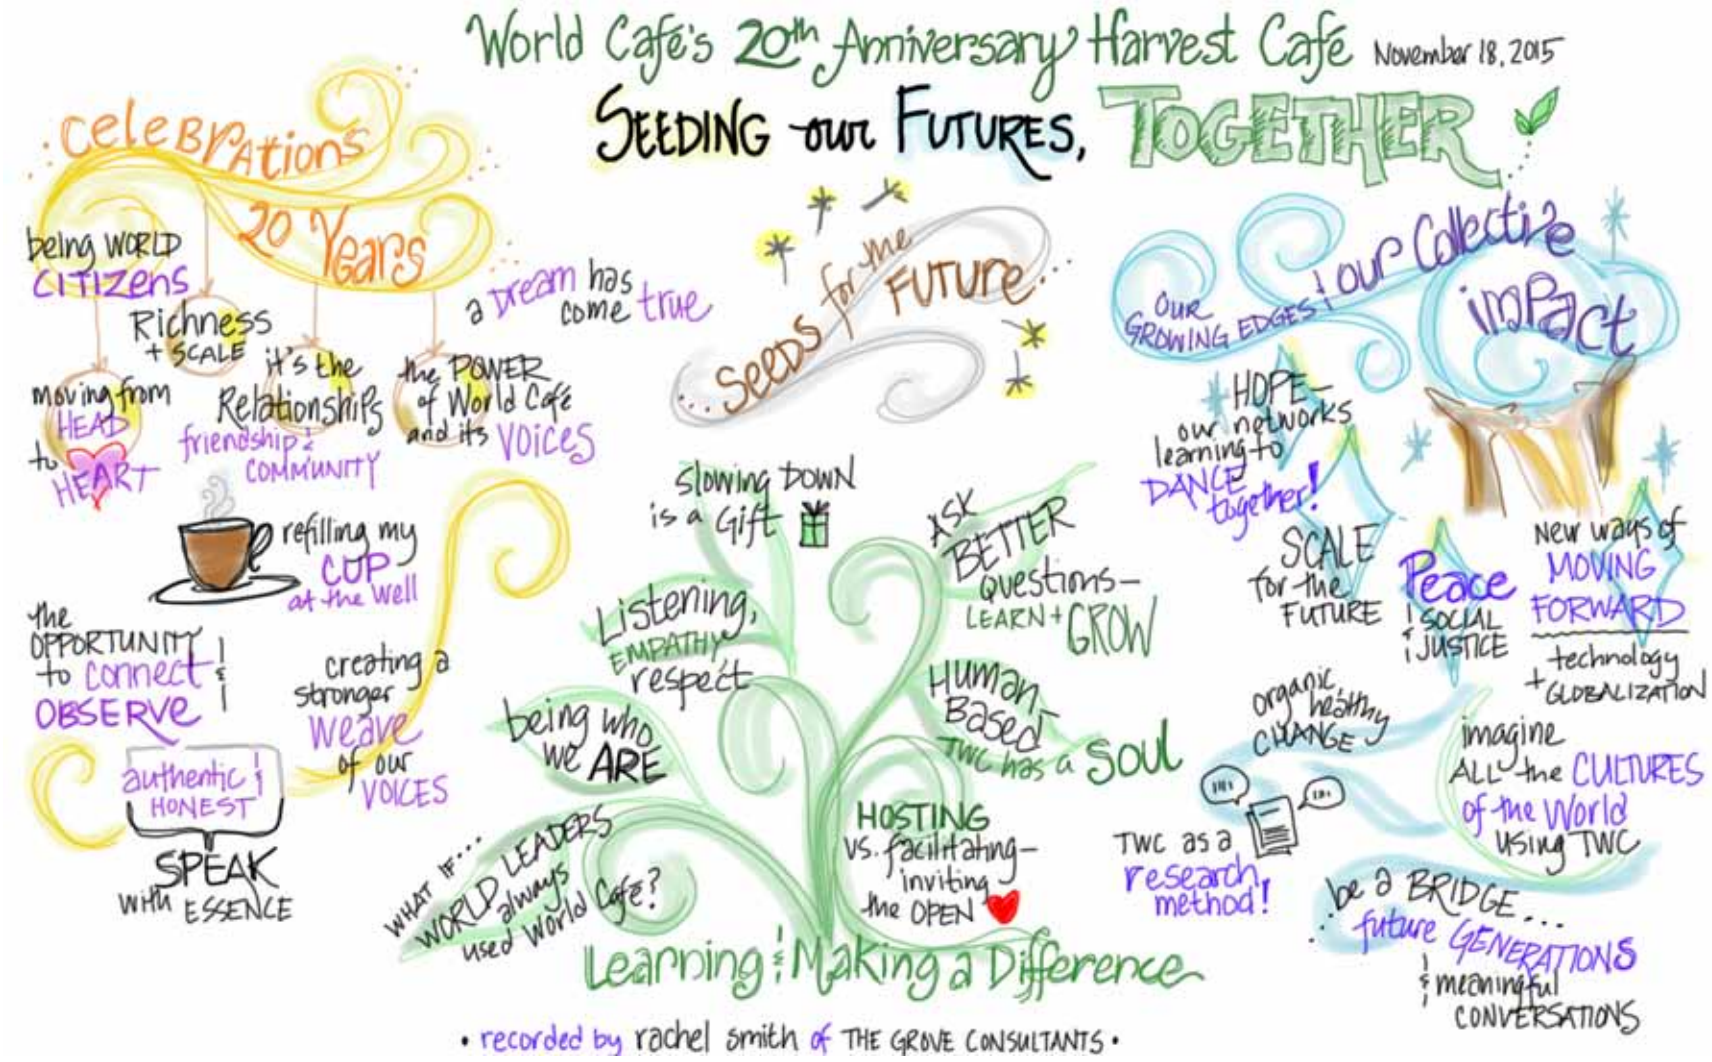 World Café's 20th Anniversary Harvest Café November 18, 2015
SEEDING our FUTURES, TOGETHER
CeleBrAtions
20 Years
being WORLD
CITIZENS
Richness
+ SCALE
moving from
HEAD
to
HEART
it's the
Relationships
friendship &
COMMUNITY
the POWER
of World Café
and its VOICES
a Dream has
come true
refilling my
CUP
at the well
the
OPPORTUNITY
to connect &
OBSERVE
authentic &
HONEST
SPEAK
with ESSENCE
creating a
stronger
weave
of our
VOICES
Seeds for the
FUTURE...
slowing DOWN
is a Gift
Listening,
EMPATHY
respect
being who
we ARE
WHAT IF...
WORLD LEADERS
always
used World Café?
ASK
BETTER
Questions—
LEARN + GROW
Human-
Based
TWC has a SOUL
HOSTING
vs. facilitating—
inviting
the OPEN
Learning & Making a Difference
OUR
GROWING EDGES & our Collective
impact
HOPE—
our networks
learning to
DANCE
together!
SCALE
for the
FUTURE
Peace
& SOCIAL
& JUSTICE
New ways of
MOVING
FORWARD
technology
+ GLOBALIZATION
organic,
healthy
CHANGE
TWC as a
research
method!
imagine
ALL the CULTURES
of the World
using TWC
be a BRIDGE...
future GENERATIONS
& meaningful
CONVERSATIONS
• recorded by rachel smith of THE GROVE CONSULTANTS •